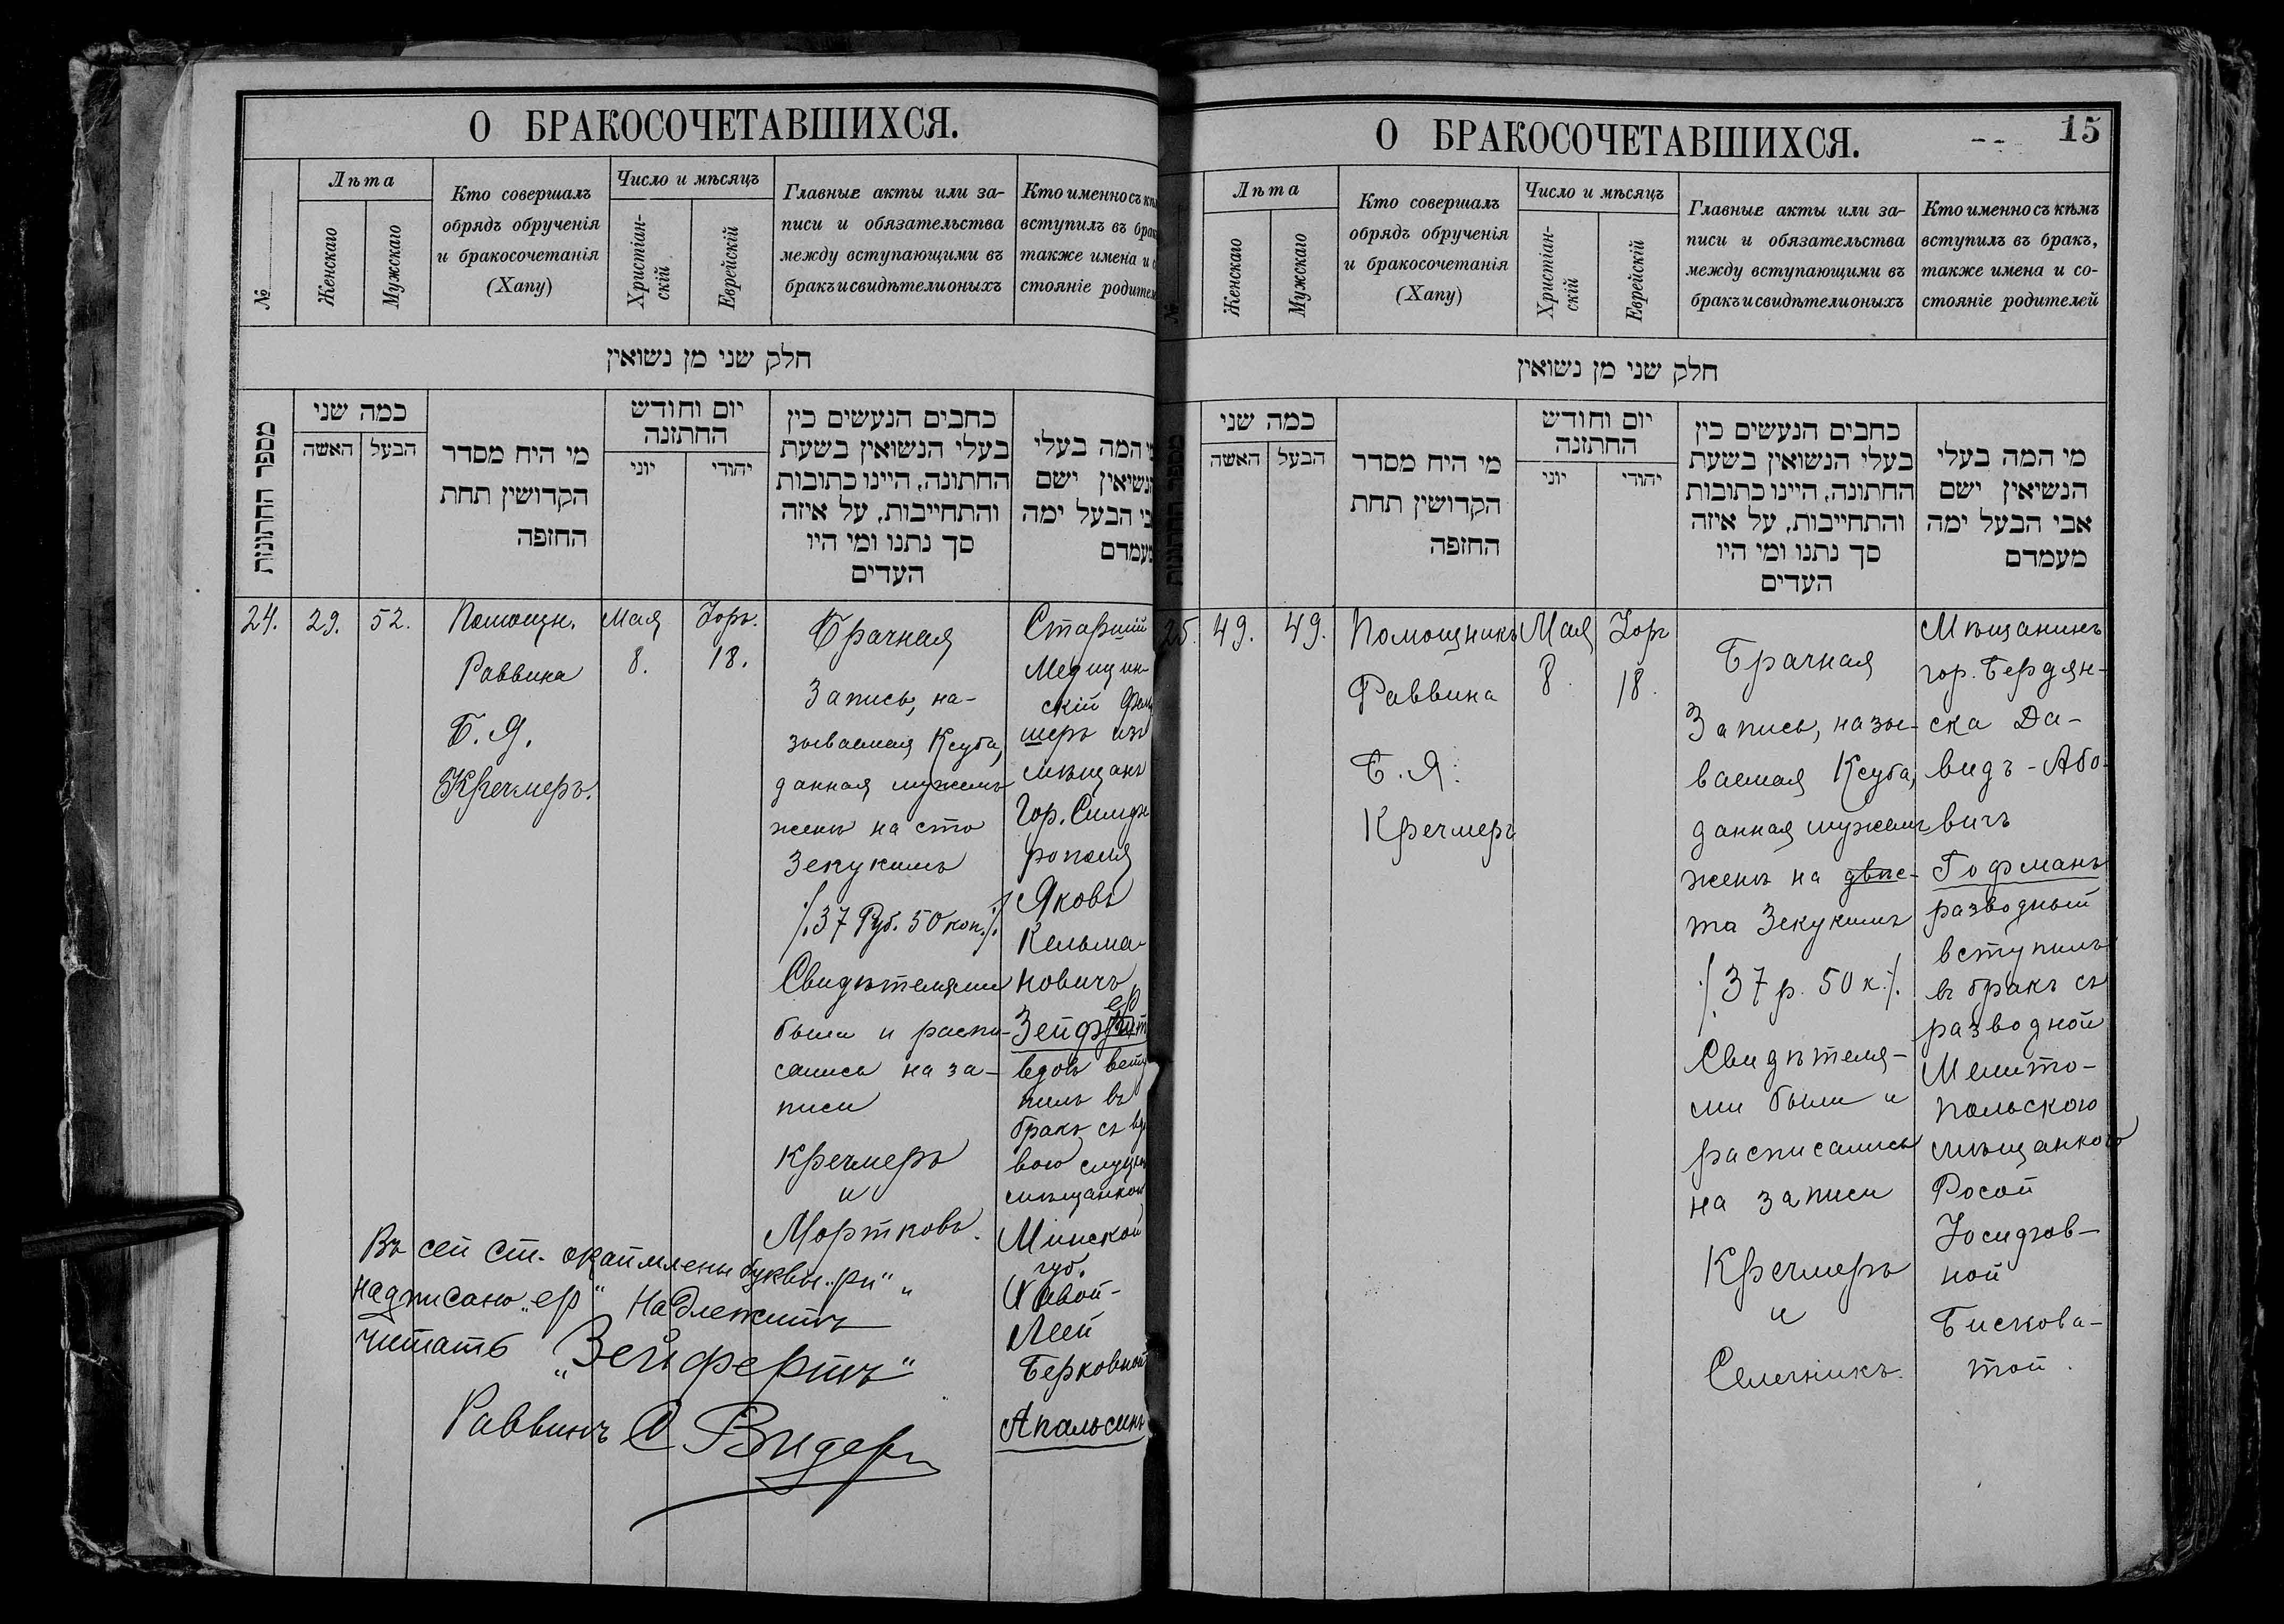 О БРАКОСОЧЕТАВШИХСЯ.
№
Лѣта
Женскаго
Мужскаго
Кто совершалъ
обрядъ обрученія
и бракосочетанія
(Хапу)
Число и мѣсяцъ
Христіан-
скій
Еврейскій
Главные акты или за-
писи и обязательства
между вступающими въ
бракъ и свидѣтели оныхъ
Кто именно съ
вступилъ въ
также имена и
стояніе
חלק שני מן נשואין
מספר החתונות
כמה שני
האשה
הבעל
מי היח מסדר
הקדושין תחת
החופה
יום וחודש
החתונה
יוני
יהודי
כתבים הנעשים בין
בעלי הנשואין בשעת
החתונה, היינו כתובות
והתחייבות, על איזה
סך נתנו ומי היו
העדים
המה בעלי
ישם
הבעל ימה
24.
29.
52.
Помощн.
Раввина
Б. Я.
Кречмеръ.
Мая
8.
Іоръ.
18.
Брачная
Запись, на-
зываемая Ксуба,
данная мужемъ
женѣ на сто
Зекукимъ
/.37 Руб. 50 коп./.
Свидѣтелями
были и распи-
сались на за-
писи
Кречмеръ
и
Мортковъ.
Старшій
Медицин-
скій
шеръ изъ
мѣщанъ
Гор.
рополя
Яковъ
Кельма-
новичъ
ер
вдовъ
пилъ въ
бракъ съ
вою
мѣщанкой
Минской
губ.
Хавой-
Леей
Берковной
Апельсинъ
Въ сей ст. окаймлены буквы „ри"
надписано „ер" Надлежитъ
читать „Зейфертъ"
Раввинъ С Видеръ
О БРАКОСОЧЕТАВШИХСЯ.
15
№
Лѣта
Женскаго
Мужскаго
Кто совершалъ
обрядъ обрученія
и бракосочетанія
(Хапу)
Число и мѣсяцъ
Христіан-
скій
Еврейскій
Главные акты или за-
писи и обязательства
между вступающими въ
бракъ и свидѣтели оныхъ
Кто именно съ кѣмъ
вступилъ въ бракъ,
также имена и со-
стояніе родителей
חלק שני מן נשואין
כמה שני
האשה
הבעל
מי היח מסדר
הקדושין תחת
החופה
יום וחודש
החתונה
יוני
יהודי
כתבים הנעשים בין
בעלי הנשואין בשעת
החתונה, היינו כתובות
והתחייבות, על איזה
סך נתנו ומי היו
העדים
מי המה בעלי
הנשיאין ישם
אבי הבעל ימה
מעמדם
25.
49.
49.
Помощникъ
Раввина
Б. Я.
Кречмеръ
Мая
8.
Іоръ
18.
Брачная
Запись, назы-
ваемая Ксуба,
данная мужемъ
женѣ на двѣс-
та Зекукимъ
/.37 р. 50 к./.
Свидѣтеля-
ми были и
расписались
на записи
Кречмеръ
и
Семечникъ.
Мѣщанинъ
гор. Бердян-
ска Да-
видъ-Або-
вичъ
Гофманъ
разводный
вступилъ
въ бракъ съ
разводной
Мелито-
польскою
мѣщанкою
Росой
Іосифов-
ной
Бискова-
той.